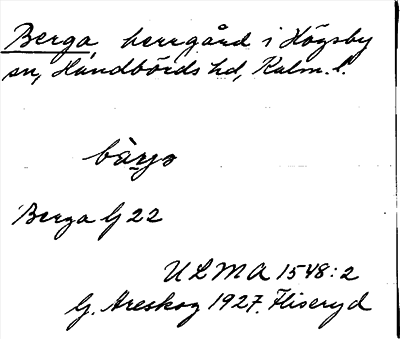 Berga, herrgård i Högsby
sn, Handbörds hd, Kalm. l.
bàrja
Berga G 22
ULMA 1548:2
G. Areskog 1927. Fliseryd